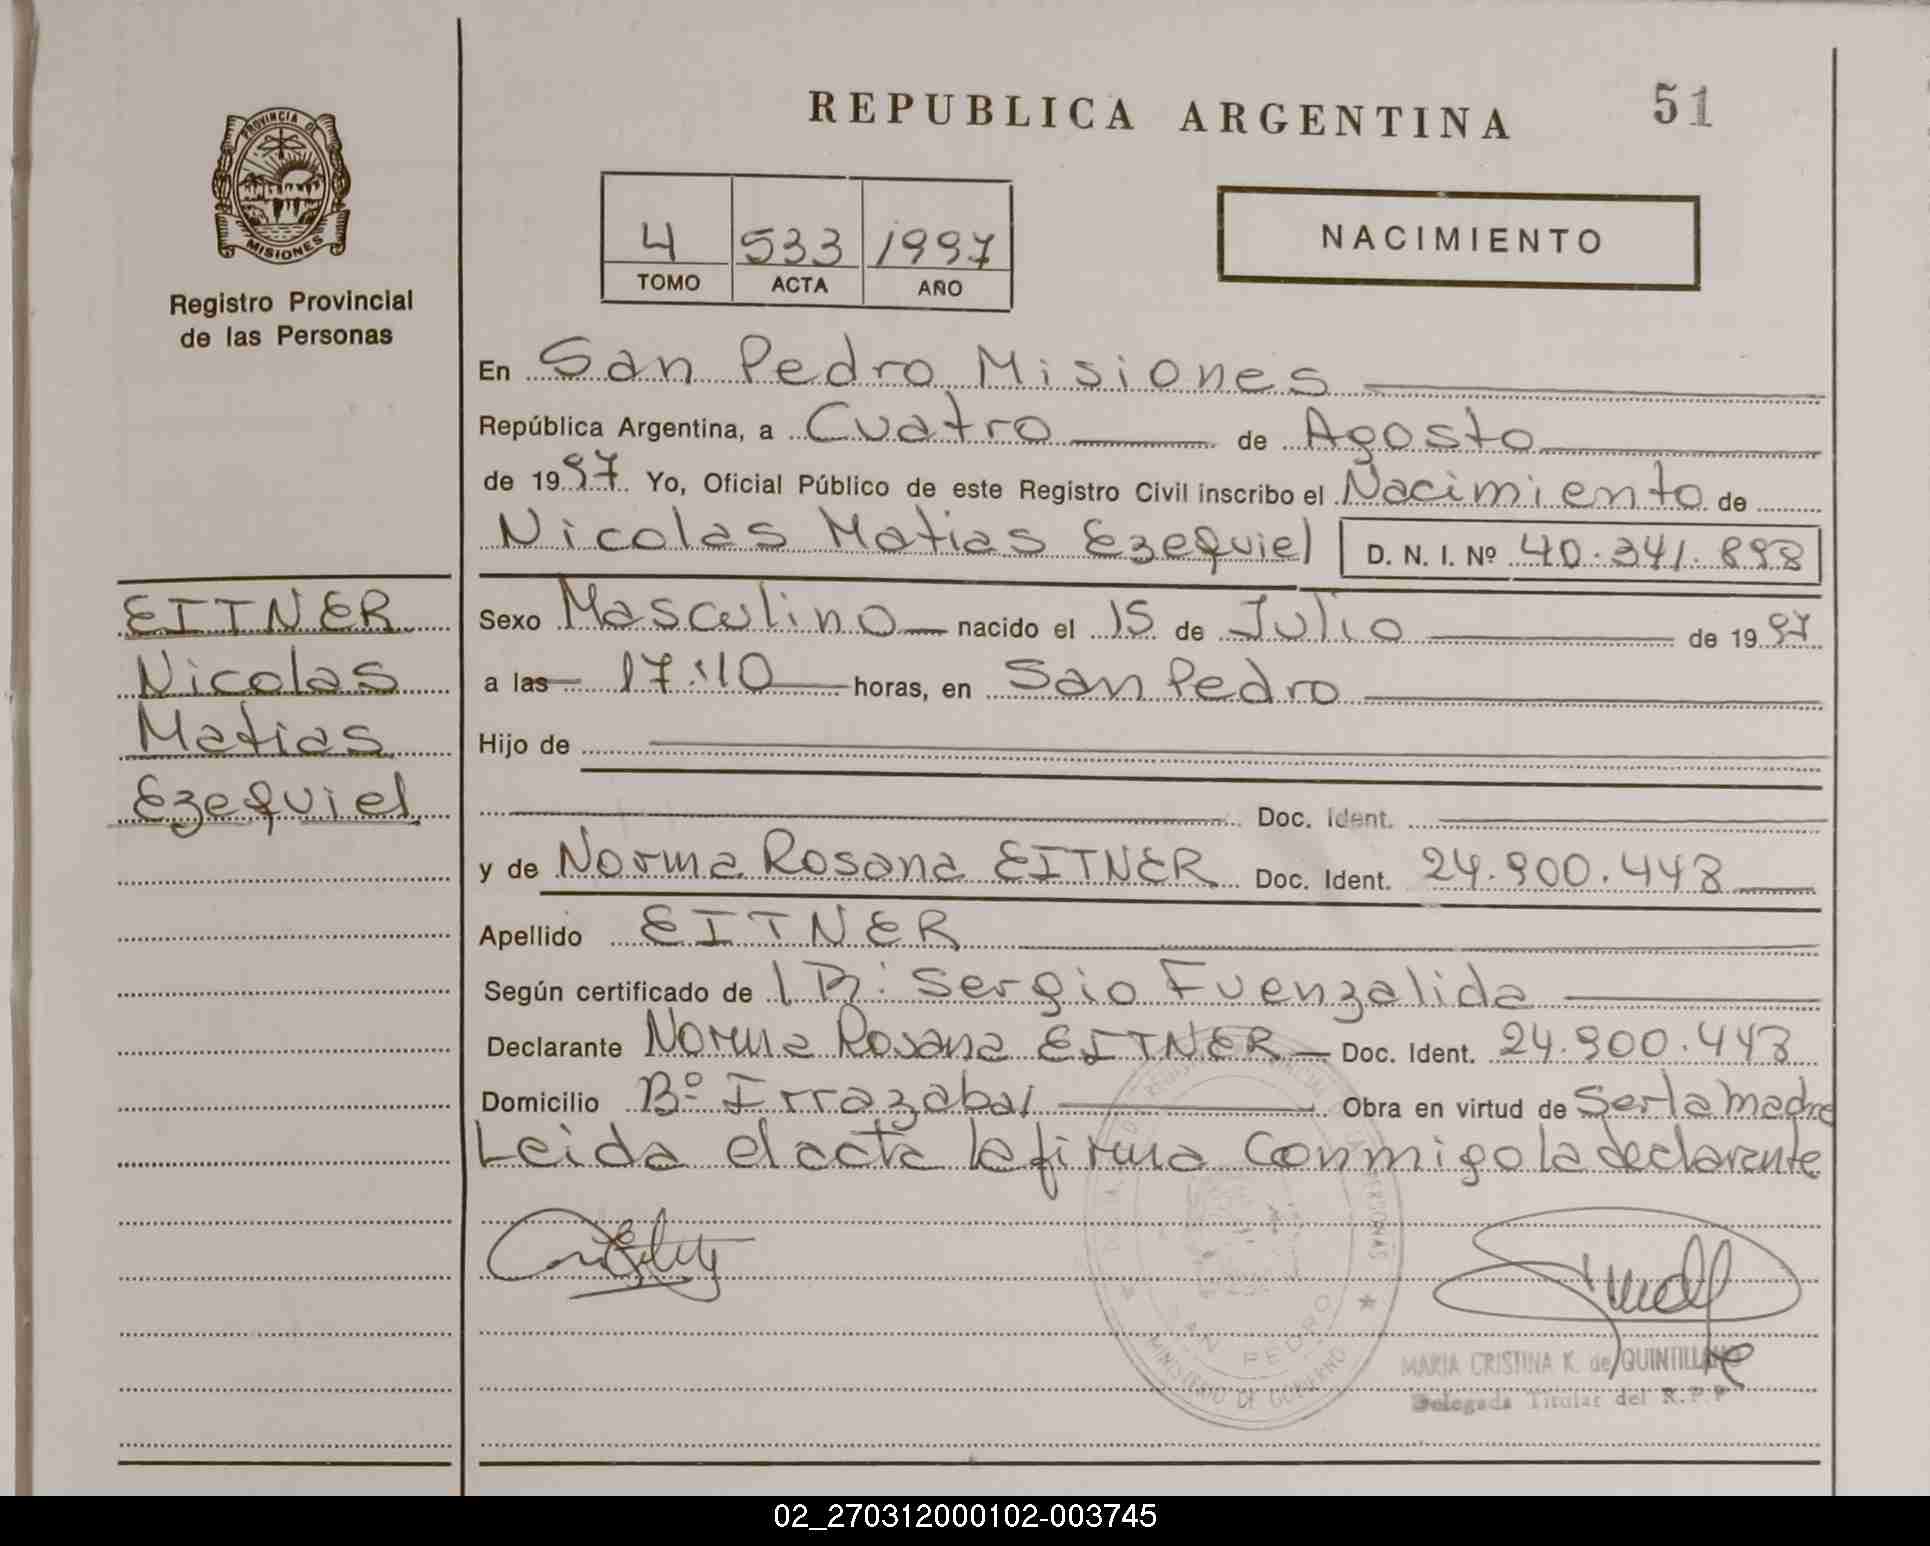 REPUBLICA ARGENTINA
51
PROVINCIA DE
MISIONES
Registro Provincial
de las Personas
4 533 1997
TOMO ACTA AÑO
NACIMIENTO
En San Pedro Misiones
República Argentina, a Cuatro de Agosto
de 1997 Yo, Oficial Público de este Registro Civil inscribo el Nacimiento de
Nicolas Matias Ezequiel D. N. I. Nº 40.341.898
EITNER
Nicolas
Matias
Ezequiel
Sexo Masculino nacido el 15 de Julio de 1997
a las 17:10 horas, en San Pedro
Hijo de
Doc. Ident.
y de Norma Rosana EITNER Doc. Ident. 24.900.448
Apellido EITNER
Según certificado de Dr: Sergio Fuenzalida
Declarante Norma Rosana EITNER Doc. Ident. 24.900.448
Domicilio Bº Irrazabal Obra en virtud de Ser la madre
Leida el acta la firma conmigo la declarante
SAN PEDRO
MINISTERIO DE GOBIERNO
MARIA CRISTINA K. de QUINTILLANO
Delegada Titular del R.P.P
02_270312000102-003745